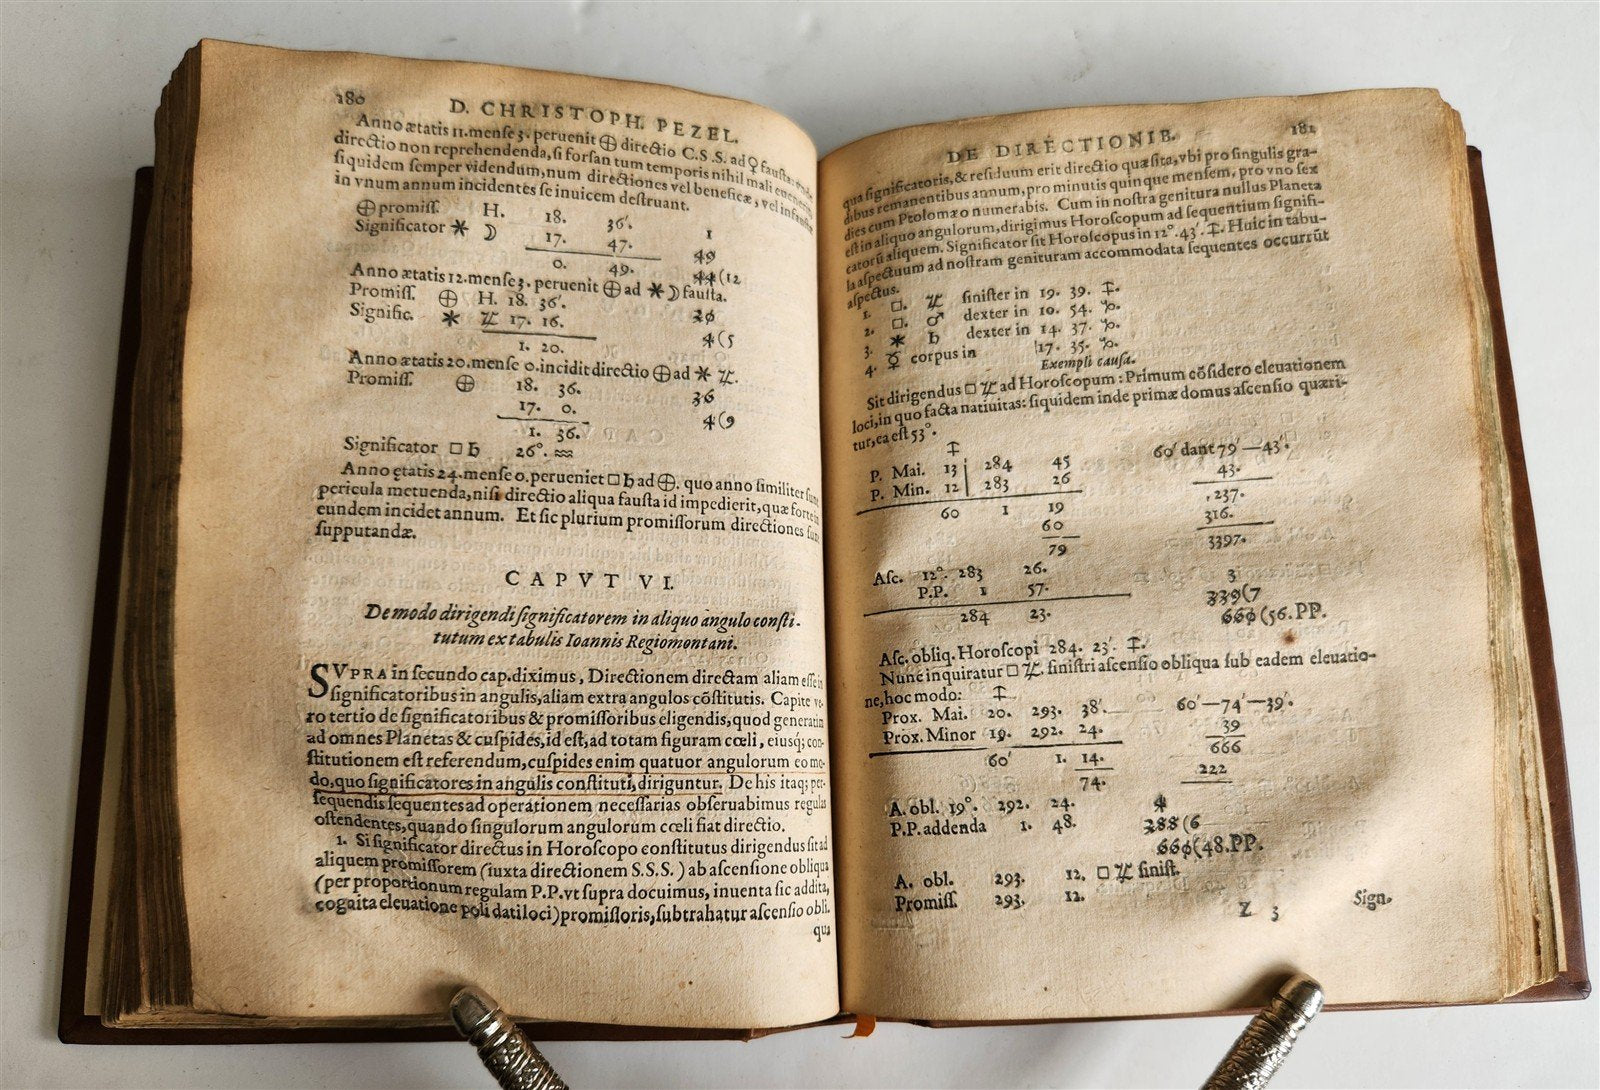 180 D. CHRISTOPH. PEZEL.
Anno ætatis 11. mense 3. peruenit ⊕ directio C.S.S. ad ♀ fausta:
directio non reprehendenda, si forsan tum temporis nihil mali
siquidem semper videndum, num directiones vel beneficæ, vel
in vnum annum incidentes se inuicem destruant.
⊕ promiss. H. 18. 36′. 1
Significator ✶ ☽ 17. 47. 49
0. 49. 44(12
Anno ætatis 12. mense 3. peruenit ⊕ ad ✶ ☽ fausta.
Promiss. ⊕ H. 18. 36′. 20
Signific. ✶ ♃ 17. 16. 4(5
1. 20.
Anno ætatis 20. mense 0. incidit directio ⊕ ad ✶ ♃.
Promiss. ⊕ 18. 36. 36
17. 0. 4(9
1. 36.
Significator □ ♄ 26°. ♒
Anno ętatis 24. mense 0. perueniet □ ♄ ad ⊕. quo anno similiter sunt
pericula metuenda, nisi directio aliqua fausta id impedierit, quæ forte in
eundem incidet annum. Et sic plurium promissorum directiones sunt
supputandæ.
CAPVT VI.
De modo dirigendi significatorem in aliquo angulo consti-
tutum ex tabulis Ioannis Regiomontani.
SVPRA in secundo cap. diximus, Directionem directam aliam esse in
significatoribus in angulis, aliam extra angulos cõstitutis. Capite ve-
ro tertio de significatoribus & promissoribus eligendis, quod generatim
ad omnes Planetas & cuspides, id est, ad totam figuram cœli, eiusq; con-
stitutionem est referendum, cuspides enim quatuor angulorum eo mo-
do, quo significatores in angulis constituti, diriguntur. De his itaq; per-
sequendis sequentes ad operationem necessarias obseruabimus regulas
ostendentes, quando singulorum angulorum cœli fiat directio.
1. Si significator directus in Horoscopo constitutus dirigendus sit ad
aliquem promissorem (iuxta directionem S.S.S.) ab ascensione obliqua
(per proportionum regulam P.P. vt supra docuimus, inuenta sic addita,
cognita eleuatione poli dati loci) promissoris, subtrahatur ascensio obli-
qua
DE DIRECTIONIB. 181
qua significatoris, & residuum erit directio quæsita, vbi pro singulis gra-
dibus remanentibus annum, pro minutis quinque mensem, pro vno sex
dies cum Ptolomæo numerabis. Cum in nostra genitura nullus Planeta
est in aliquo angulorum, dirigimus Horoscopum ad sequentium signifi-
catorũ aliquem. Significator sit Horoscopus in 12°. 43′. ♐. Huic in tabu-
la aspectuum ad nostram genituram accommodata sequentes occurrũt
aspectus.
1. □. ♃ sinister in 19. 39. ♐.
2. □. ♂ dexter in 10. 54. ♑.
3. ✶ ♄ dexter in 14. 37. ♑.
4. ☿ corpus in 17. 35. ♑.
Exempli causa.
Sit dirigendus □ ♃ ad Horoscopum: Primum cõsidero eleuationem
loci, in quo facta natiuitas: siquidem inde primæ domus ascensio quæri-
tur, ea est 53°.
♐ 60′ dant 79′—43′.
P. Mai. 13 284 45 43.
P. Min. 12 283 26 237.
60 1 19 316.
60 3397.
79
Asc. 12°. 283 26. 3
P.P. 1 57. 339(7
284 23. 660(56. PP.
Asc. obliq. Horoscopi 284. 23′. ♐.
Nunc inquiratur □ ♃. sinistri ascensio obliqua sub eadem eleuatio-
ne, hoc modo: ♐
Prox. Mai. 20. 293. 38′. 60′—74′—39′.
Prox. Minor 19. 292. 24. 39
60′ 1. 14. 666
74. 222
A. obl. 19°. 292. 24. 4
P.P. addenda 1. 48. 288(6
660(48. PP.
A. obl. 293. 12. □ ♃ sinist.
Promiss. 293. 12.
Z 3 Sign.